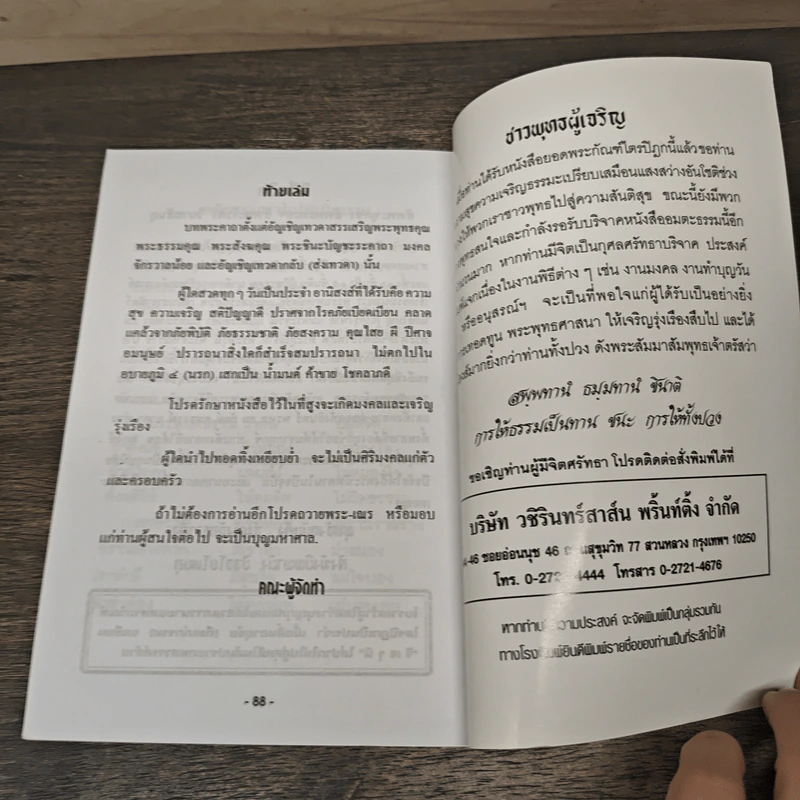 ท้ายเล่ม
บทพระคาถาตั้งแต่อัญเชิญเทวดาสรรเสริญพระพุทธคุณ
พระธรรมคุณ พระสังฆคุณ พระชินะบัญชะระคาถา มงคล
จักรวาลน้อย และอัญเชิญเทวดากลับ (ส่งเทวดา) นั้น
ผู้ใดสวดทุก ๆ วันเป็นประจำ อานิสงส์ที่ได้รับคือ ความ
สุข ความเจริญ สติปัญญาดี ปราศจากโรคภัยเบียดเบียน คลาด
แคล้วจากภัยพิบัติ ภัยธรรมชาติ ภัยสงคราม คุณไสย ผี ปีศาจ
อมนุษย์ ปรารถนาสิ่งใดก็สำเร็จสมปรารถนา ไม่ตกไปใน
อบายภูมิ ๔ (นรก) เสกเป็น น้ำมนต์ ค้าขาย โชคลาภดี
โปรดรักษาหนังสือไว้ในที่สูงจะเกิดมงคลและเจริญ
รุ่งเรือง
ผู้ใดนำไปทอดทิ้งเหยียบย่ำ จะไม่เป็นศิริมงคลแก่ตัว
และครอบครัว
ถ้าไม่ต้องการอ่านอีกโปรดถวายพระ-เณร หรือมอบ
แก่ท่านผู้สนใจต่อไป จะเป็นบุญมหาศาล.
คณะผู้จัดทำ
- 88 -
ชาวพุทธผู้เจริญ
ท่านได้รับหนังสือยอดพระกัณฑ์ไตรปิฎกนี้แล้วขอท่าน
สุขความเจริญธรรมะเปรียบเสมือนแสงสว่างอันโชติช่วง
ให้พวกเราชาวพุทธไปสู่ความสันติสุข ขณะนี้ยังมีพวก
พุทธสนใจและกำลังรอรับบริจาคหนังสืออมตะธรรมนี้อีก
มาก หากท่านมีจิตเป็นกุศลศรัทธาบริจาค ประสงค์
แจกเนื่องในงานพิธีต่าง ๆ เช่น งานมงคล งานทำบุญวัน
หรืออนุสรณ์ฯ จะเป็นที่พอใจแก่ผู้ได้รับเป็นอย่างยิ่ง
ทอดทูน พระพุทธศาสนา ให้เจริญรุ่งเรืองสืบไป และได้
มากยิ่งกว่าทานทั้งปวง ดังพระสัมมาสัมพุทธเจ้าตรัสว่า
สพฺพทานํ ธมฺมทานํ ชินาติ
การให้ธรรมเป็นทาน ชนะ การให้ทั้งปวง
ขอเชิญท่านผู้มีจิตศรัทธา โปรดติดต่อสั่งพิมพ์ได้ที่
บริษัท วชิรินทร์สาส์น พริ้นท์ติ้ง จำกัด
-46 ซอยอ่อนนุช 46 สุขุมวิท 77 สวนหลวง กรุงเทพฯ 10250
โทร. 0-272 4444 โทรสาร 0-2721-4676
หากท่าน ความประสงค์ จะจัดพิมพ์เป็นกลุ่มรวมกัน
ทางโรงพิมพ์ยินดีพิมพ์รายชื่อของท่านเป็นที่ระลึกไว้ให้